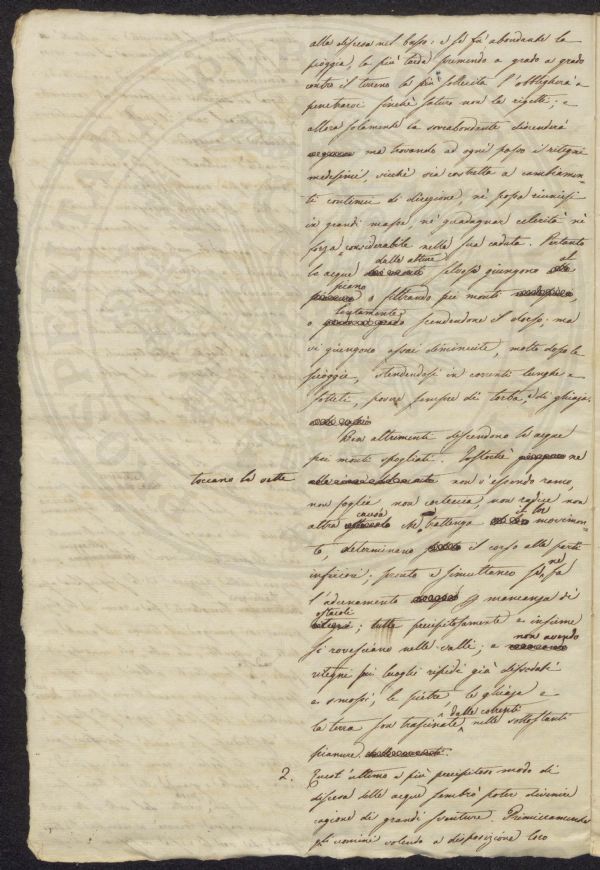 alla discesa nel basso: e se fa' abondante la
pioggia, la più tarda premendo a grado a grado
contro il terreno la più sollecita l'obbligherà a
penetrarvi finchè saturo non la rigetti; e
allora solamente la sovrabondante discenderà
ma trovando ad ogni passo i ritegni
medesimi, sicchè sia costretta a cambiamen-
ti continui di direzione, nè possa riunirsi
in grandi masse, nè guadagnar celerità nè
forza considerabile nella sua caduta. Pertanto
dalle alture
le acque selvose giungono al
piano
o filtrando pei monti
lentamente
o scendendone il dorso; ma
vi giungono assai diminuite, molto dopo le
pioggie, stendendosi in correnti lunghe e
sottili, povere sempre di torba, e di ghiaja.
Ben altrimenti discendono le acque
pei monti spogliati. Tostochè ne
toccano le vette
non v'essendo ramo,
non foglia non corteccia, non radice non
causa il lor
altra che trattenga movimen-
to, determinano il corso alle parti
inferiori; pronto e simultaneo se ne fa
l'adunamento p mancanza di
ostacoli
; tutte precipitosamente e insieme
si rovesciano nelle valli; e non avendo
ritegni pei luoghi ripidi già dissodati
e smossi, le pietre, la ghiaja e
dalle correnti
la terra son trascinate nelle sottostanti
pianure.
2. Quest'ultimo e più precipitoso modo di
discesa delle acque sembrò poter divenire
cagione di grandi sventure. Primieramente
gli uomini volendo a disposizione loro